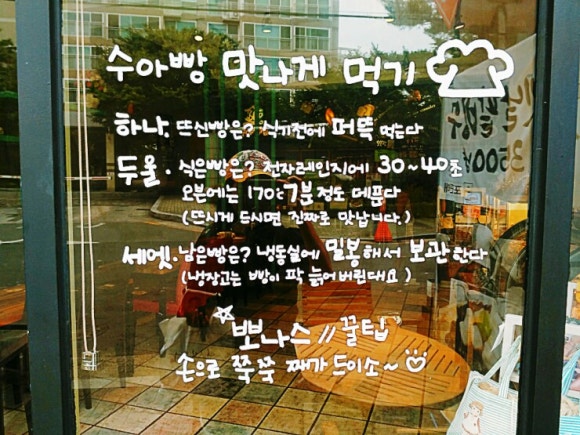 수아빵 맛나게 먹기
하나. 뜨신빵은? 식기전에 퍼뜩 먹는다
두울. 식은빵은? 전자레인지에 30~40초
오븐에는 170℃ 7분 정도 데푼다
(뜨시게 드시면 진짜로 맛납니다.)
세엣. 남은빵은? 냉동실에 밀봉해서 보관한다
(냉장고는 빵이 팍 늙어버린대요)
뽀나스 // 꿀팁
손으로 쭉쭉 째가 드이소~